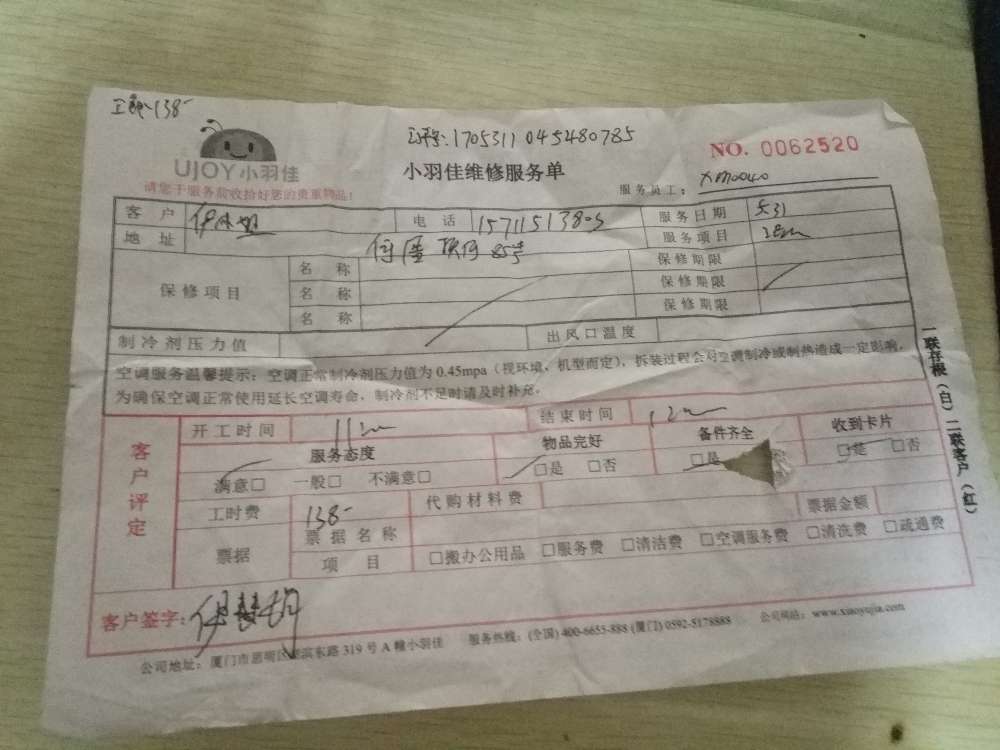 138-
订单号: 1705311045480785
NO. 0062520
UJOY小羽佳
小羽佳维修服务单
请您于服务前收拾好您的贵重物品!
服务员工: XM0040
客户 电话 服务日期 5.31
地址 服务项目
名称 保修期限
保修项目 名称 保修期限
名称 保修期限
制冷剂压力值 出风口温度
空调服务温馨提示: 空调正常制冷剂压力值为 0.45mpa (视环境、机型而定), 拆装过程会对空调制冷或制热造成一定影响,
为确保空调正常使用延长空调寿命, 制冷剂不足时请及时补充。
一联存根(白) 二联客户(红)
客户评定
开工时间 结束时间
服务态度 物品完好 备件齐全 收到卡片
满意□ 一般□ 不满意□ □是 □否 □是 □是 □否
工时费 138- 代购材料费 票据金额
票据 票据名称
项目 □搬办公用品 □服务费 □清洁费 □空调服务费 □清洗费 □疏通费
客户签字:
公司地址: 厦门市思明区 滨东路 319 号 A 幢小羽佳 服务热线: (全国) 400-6655-888 (厦门) 0592-5178888 公司网站: www.xiaoyujia.com